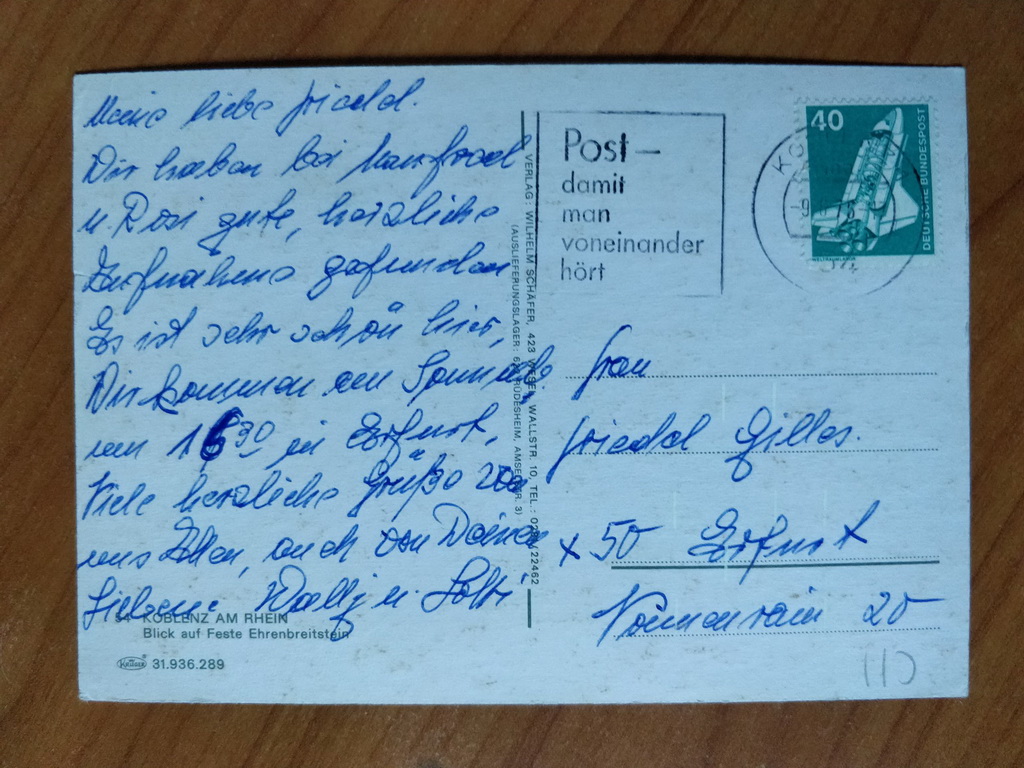 Meine liebe Friedel.
Wir haben bei Manfred
u. Rosi gute, herzliche
Aufnahme gefunden
Es ist sehr schön hier,
Wir kommen am Sonnab.
um 16 30 in Erfurt,
Viele herzliche Grüße von
uns Allen, auch von Deinen
Lieben Wally u.
54 KOBLENZ AM RHEIN
Blick auf Feste Ehrenbreitstein
Krüger 31.936.289
VERLAG: WILHELM SCHÄFER, 423 WESEL, WALLSTR. 10, TEL.: 22462
(AUSLIEFERUNGSLAGER: RÜDESHEIM, 3)
Post—
damit
man
voneinander
hört
40
DEUTSCHE BUNDESPOST
WELTRAUMLABOR
Frau
Friedel Gilles.
x 50 Erfurt
Nonnenrain 25
110